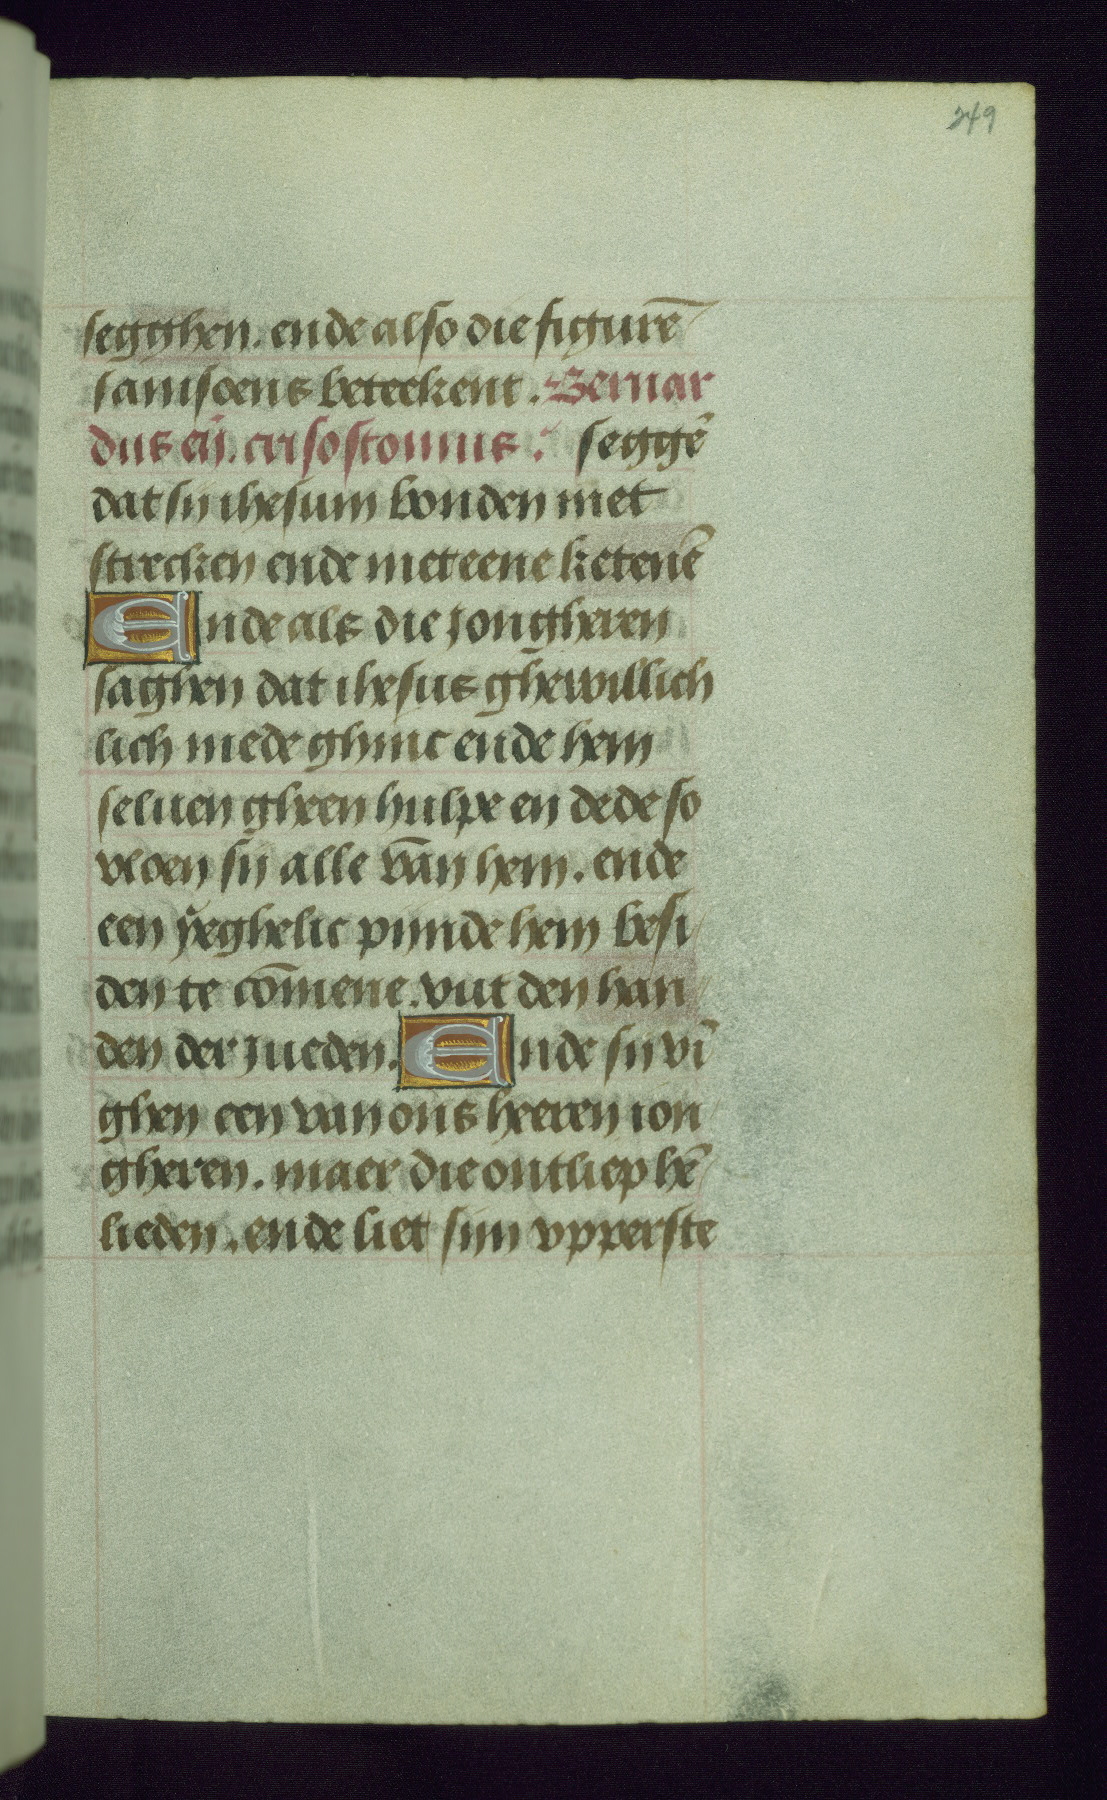 249
segghen. ende also die figurē
samsoens beteekent. Bernar
dus eñ. crisostomus: seggē
dat sij ihesum bonden met
strecken ende met eene ketenē
Ende als die jongheren
saghen dat ihesus ghewillich
lich mede ghinc ende hem
seluen gheen hulpe en dede so
vloen sij alle van hem. ende
een yeghelic pijnde hem besi
den te cōmene. vut den han
den der jueden. Ende sij vī
ghen een van ons heeren ion
gheren. maer die ontliep hē
lieden. ende liet sijn vpperste